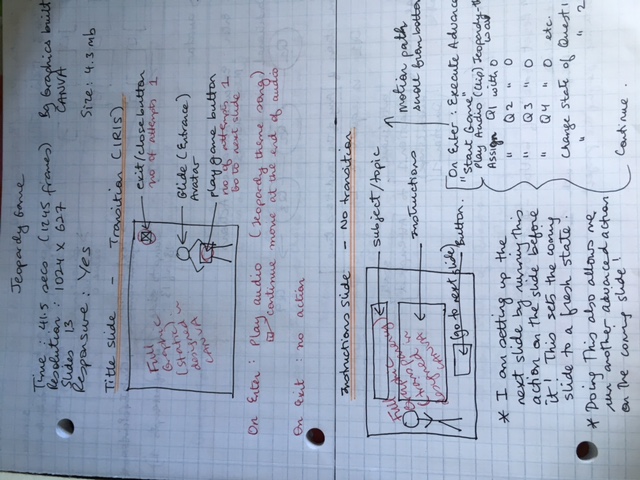 Jeopardy Game
Time : 41.5 secs (1245 frames)
Resolution : 1024 x 627
Slides 13
Responsive : Yes
Bg Graphics built
CANVA
Size : 4.3 mb
Title Slide - Transition (IRIS)
exit/close button
no of attempts 1
Slide (Entrance)
Avatar
Play game button
no of attempts 1
Go to next slide
Full
Graphic
(static)
designed
CANVA
On Enter : Play audio (Jeopardy theme song)
continue move at the end of audio
On Exit : no action
Instructions Slide - No transition
subject/topic
instructions
(go to next slide)
Button.
Full
motion path
small from bottom
On Enter : Execute Advance
"Start Game"
Play Audio (clip) Jeopardy-th
Assign Q1 with 0
" Q2 " 0
" Q3 " 0
" Q4 " 0 etc.
Change state of Quest 1
" " 2
Continue.
* I am setting up the
next slide by running this
action on the slide before
it! This sets the coming
slide to a fresh state!
* Doing This also allows me
run another advanced action
on the coming slide!